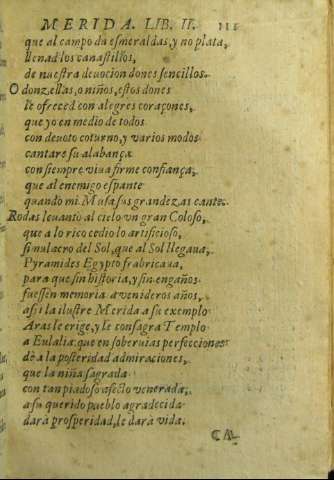 MERIDA. LIB. II. 115
que al campo da esmeraldas, y no plata,
llenad los canastillos,
de nuestra deuocion dones sencillos.
O donzellas, o niños, estos dones
le ofreced con alegres coraçones,
que yo en medio de todos
con deuoto coturno, y varios modos
cantare su alabança
con siempre viua firme confiança,
que al enemigo espante
quando mi Musa sus grandezas cante.
Rodas leuanto al cielo vn gran Coloso,
que a lo rico cedio lo artificioso,
simulacro del Sol, que al Sol llegaua,
Pyramides Egypto frabricaua,
para que sin historia, y sin engaños
fuessen memoria a venideros años,
assi la ilustre Merida a su exemplo
Aras le erige, y le consagra Templo
a Eulalia que en soberuias perfecciones
dè a la posteridad admiraciones,
que la niña sagrada
con tan piadoso afecto venerada,
a su querido pueblo agradecida
darà prosperidad, le darà vida.
CA-